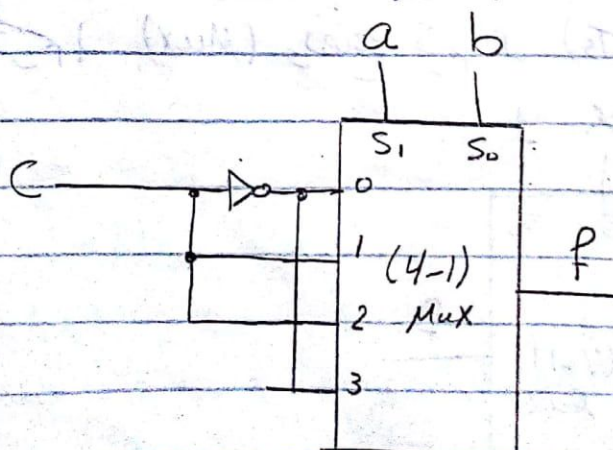 a b
S₁ S₀
C 0
1 (4-1) f
2 Mux
3